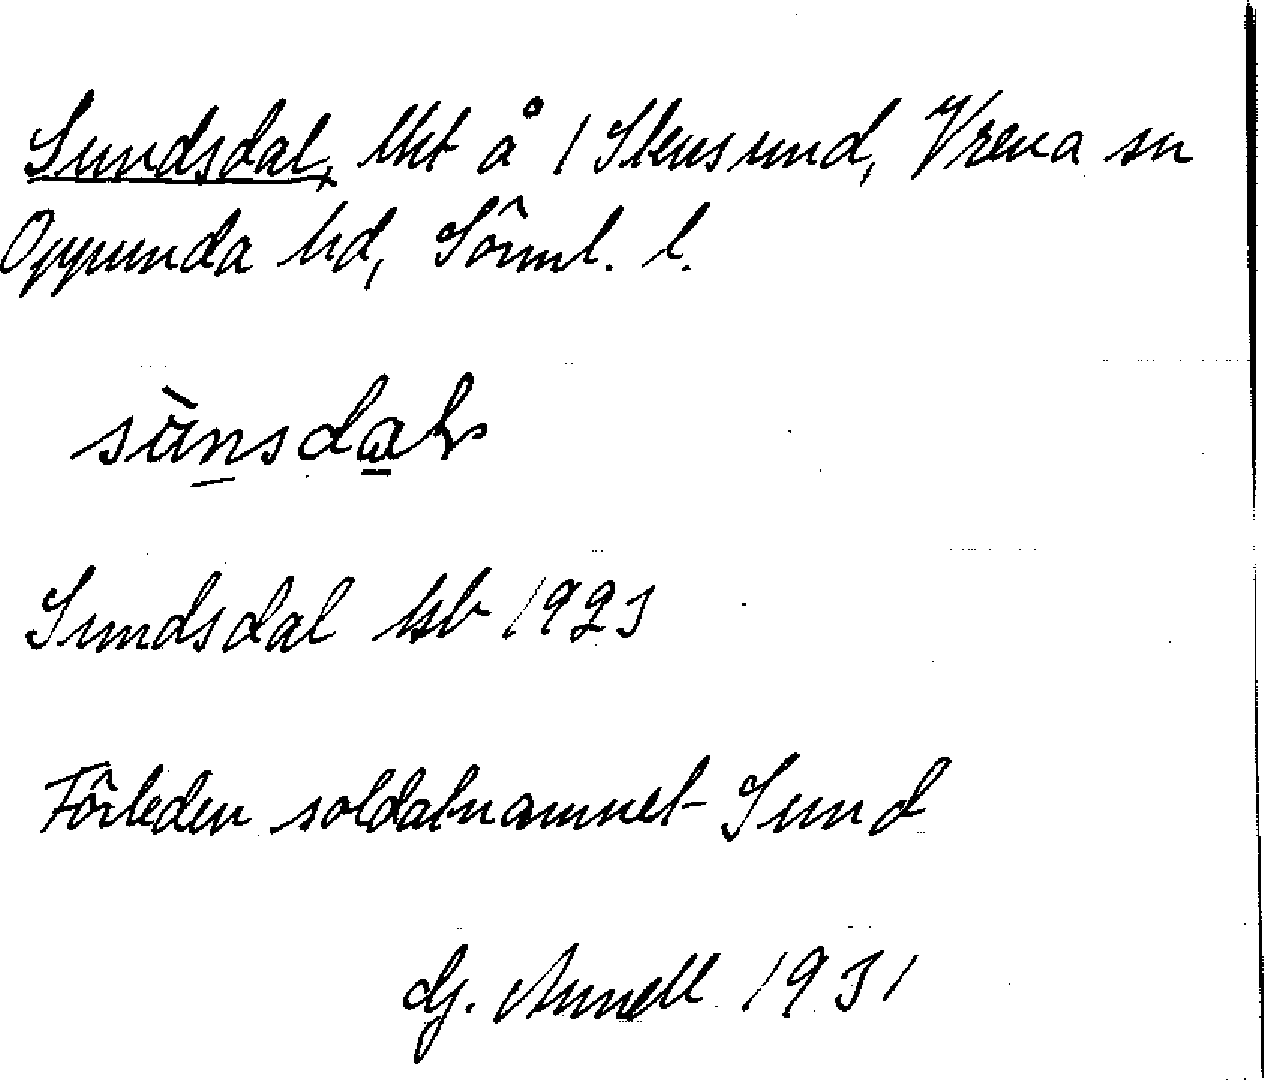 Sundsdal, lht å 1 Stensund, Vrena sn
Oppunda hd, Söml. l.
sùnsdal
Sundsdal ksb 1923
Förleden soldatnamnet Sund
G. Annell 1931